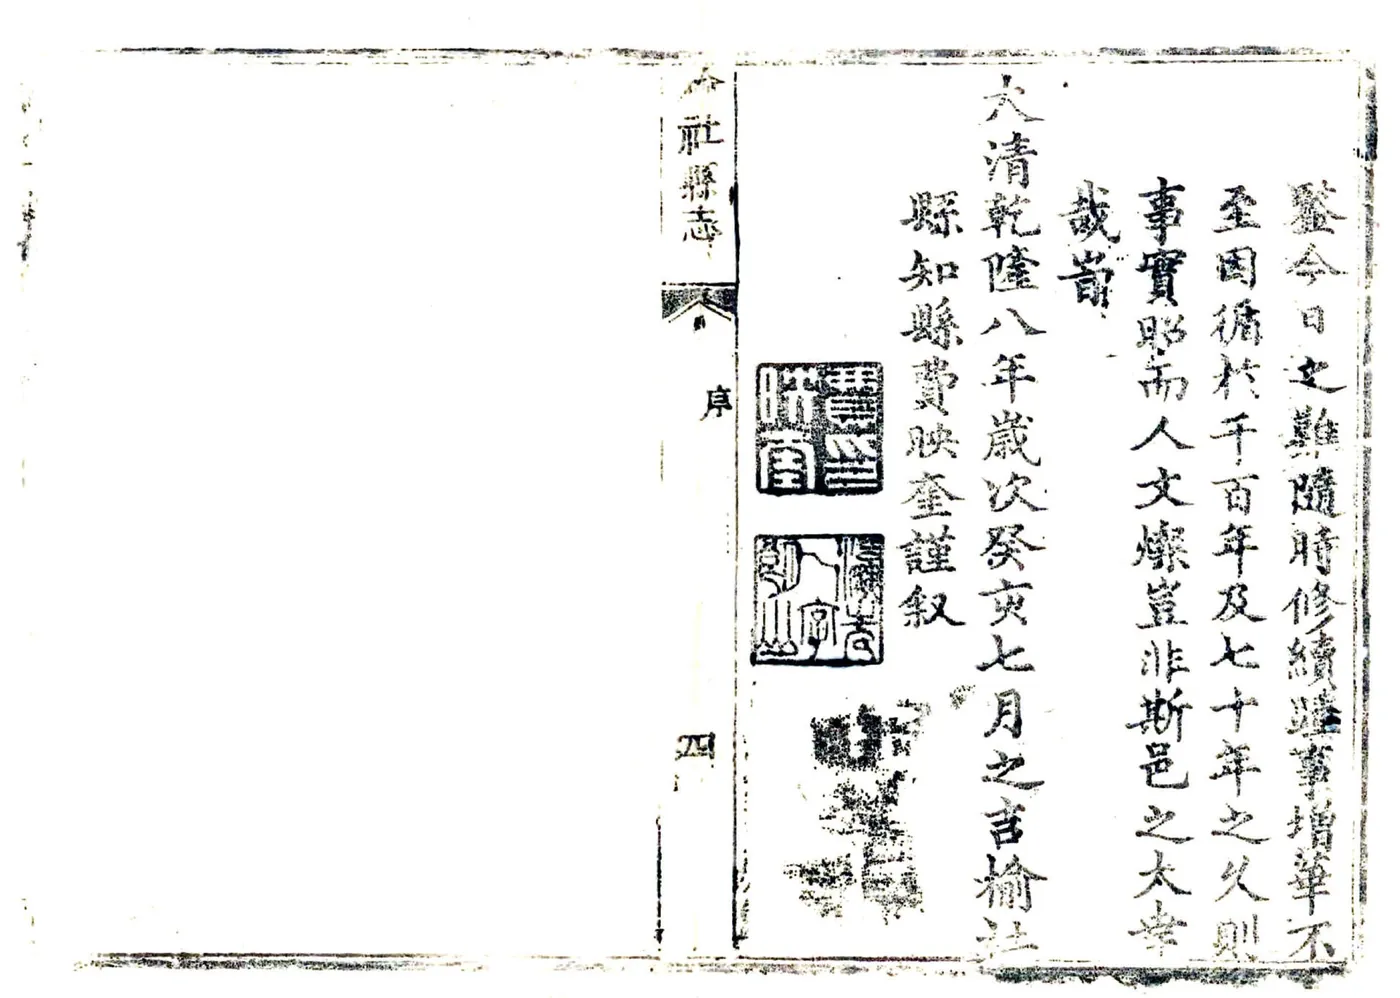 鑒今日之難隨時修續踵事增華不
至因循於千百年及七十年之久則
事實昭而人文燦豈非斯邑之大幸
哉旹
大清乾隆八年歲次癸亥七月之吉榆社
縣知縣費映奎謹叙
費印
映奎
社縣志
序
四